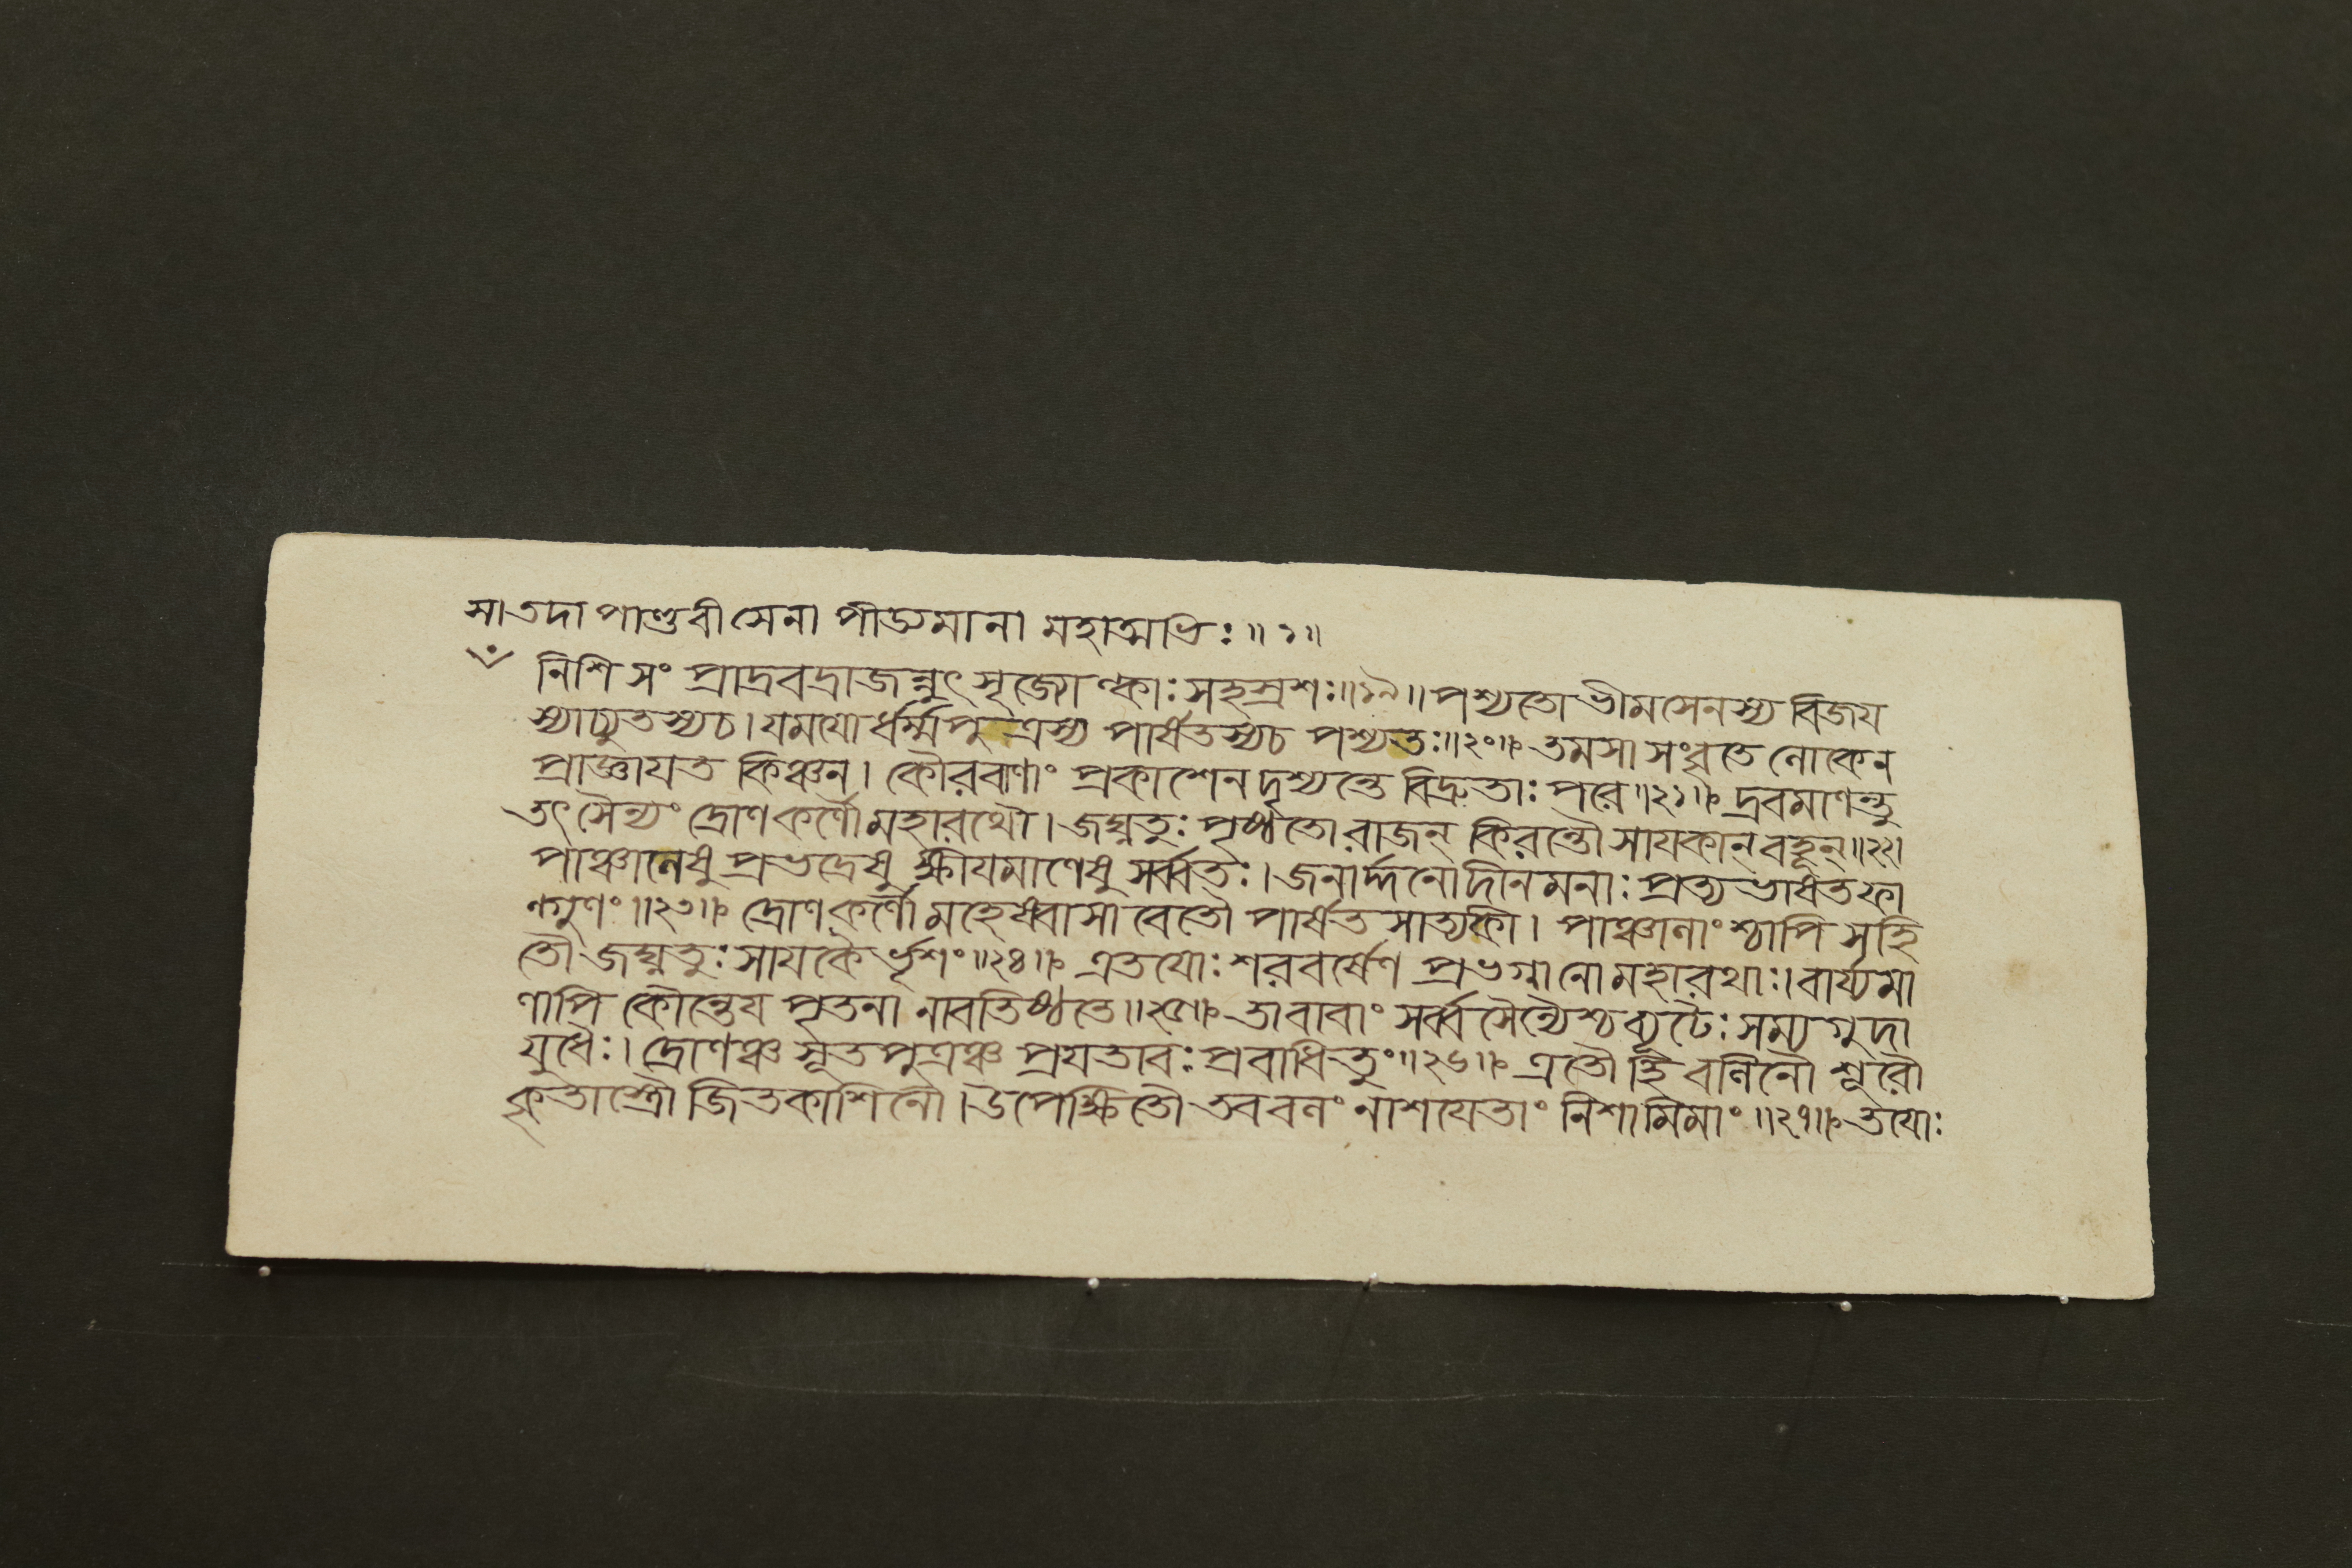 সা তদা পাণ্ডবী সেনা পীড্যমানা মহাত্মভিঃ॥১॥
নিশি সং প্রাদ্রবদ্রাজন্নুৎসৃজ্যোল্কাঃ সহস্রশঃ॥১৯॥ পশ্যতো ভীমসেনস্য বিজয
স্যাচ্যুতস্যচ। যমযো র্ধর্ম্মপুত্রস্য পার্ষতস্যচ পশ্যতঃ॥২০॥ তমসা সংবৃতে লোকেন
প্রাজ্ঞাযত কিঞ্চন। কৌরবাণাং প্রকাশেন দৃশ্যন্তে বিদ্রুতাঃ পরে॥২১॥ দ্রবমাণন্তু
তৎ সৈন্যং দ্রোণকর্ণৌ মহারথৌ। জঘ্নতুঃ পৃষ্ঠতো রাজন্ কিরন্তৌ সাযকান্ বহূন্॥২২।
পাঞ্চালেষু প্রভদ্রেষু ক্ষীযমাণেষু সর্ব্বতঃ। জনার্দ্দনো দীনমনাঃ প্রত্যভাষত ফা
ল্গুণং॥২৩॥ দ্রোণকর্ণৌ মহেষ্বাসা বেতৌ পার্ষত সাত্যকী। পাঞ্চালাংশ্চাপি সহি
তৌ জঘ্নতুঃ সাযকৈ র্ভৃশং॥২৪॥ এতযোঃ শরবর্ষেণ প্রভগ্নানো মহারথাঃ। বার্য্যমা
ণাপি কৌন্তেয পৃতনা নাবতিষ্ঠতে॥২৫॥ তাবাবাং সর্ব্বসৈন্যৈশ্চ ব্যূঢৈঃ সম্যগুদা
যুধৈঃ। দ্রোণঞ্চ সূতপুত্রঞ্চ প্রযতাবঃ প্রবাধিতুং॥২৬॥ এতৌ হি বলিনৌ শূরৌ
কৃতাস্ত্রৌ জিতকাশিনৌ। উপেক্ষিতৌ তব বলং নাশযেতাং নিশামিমাং॥২৭॥ তযোঃ